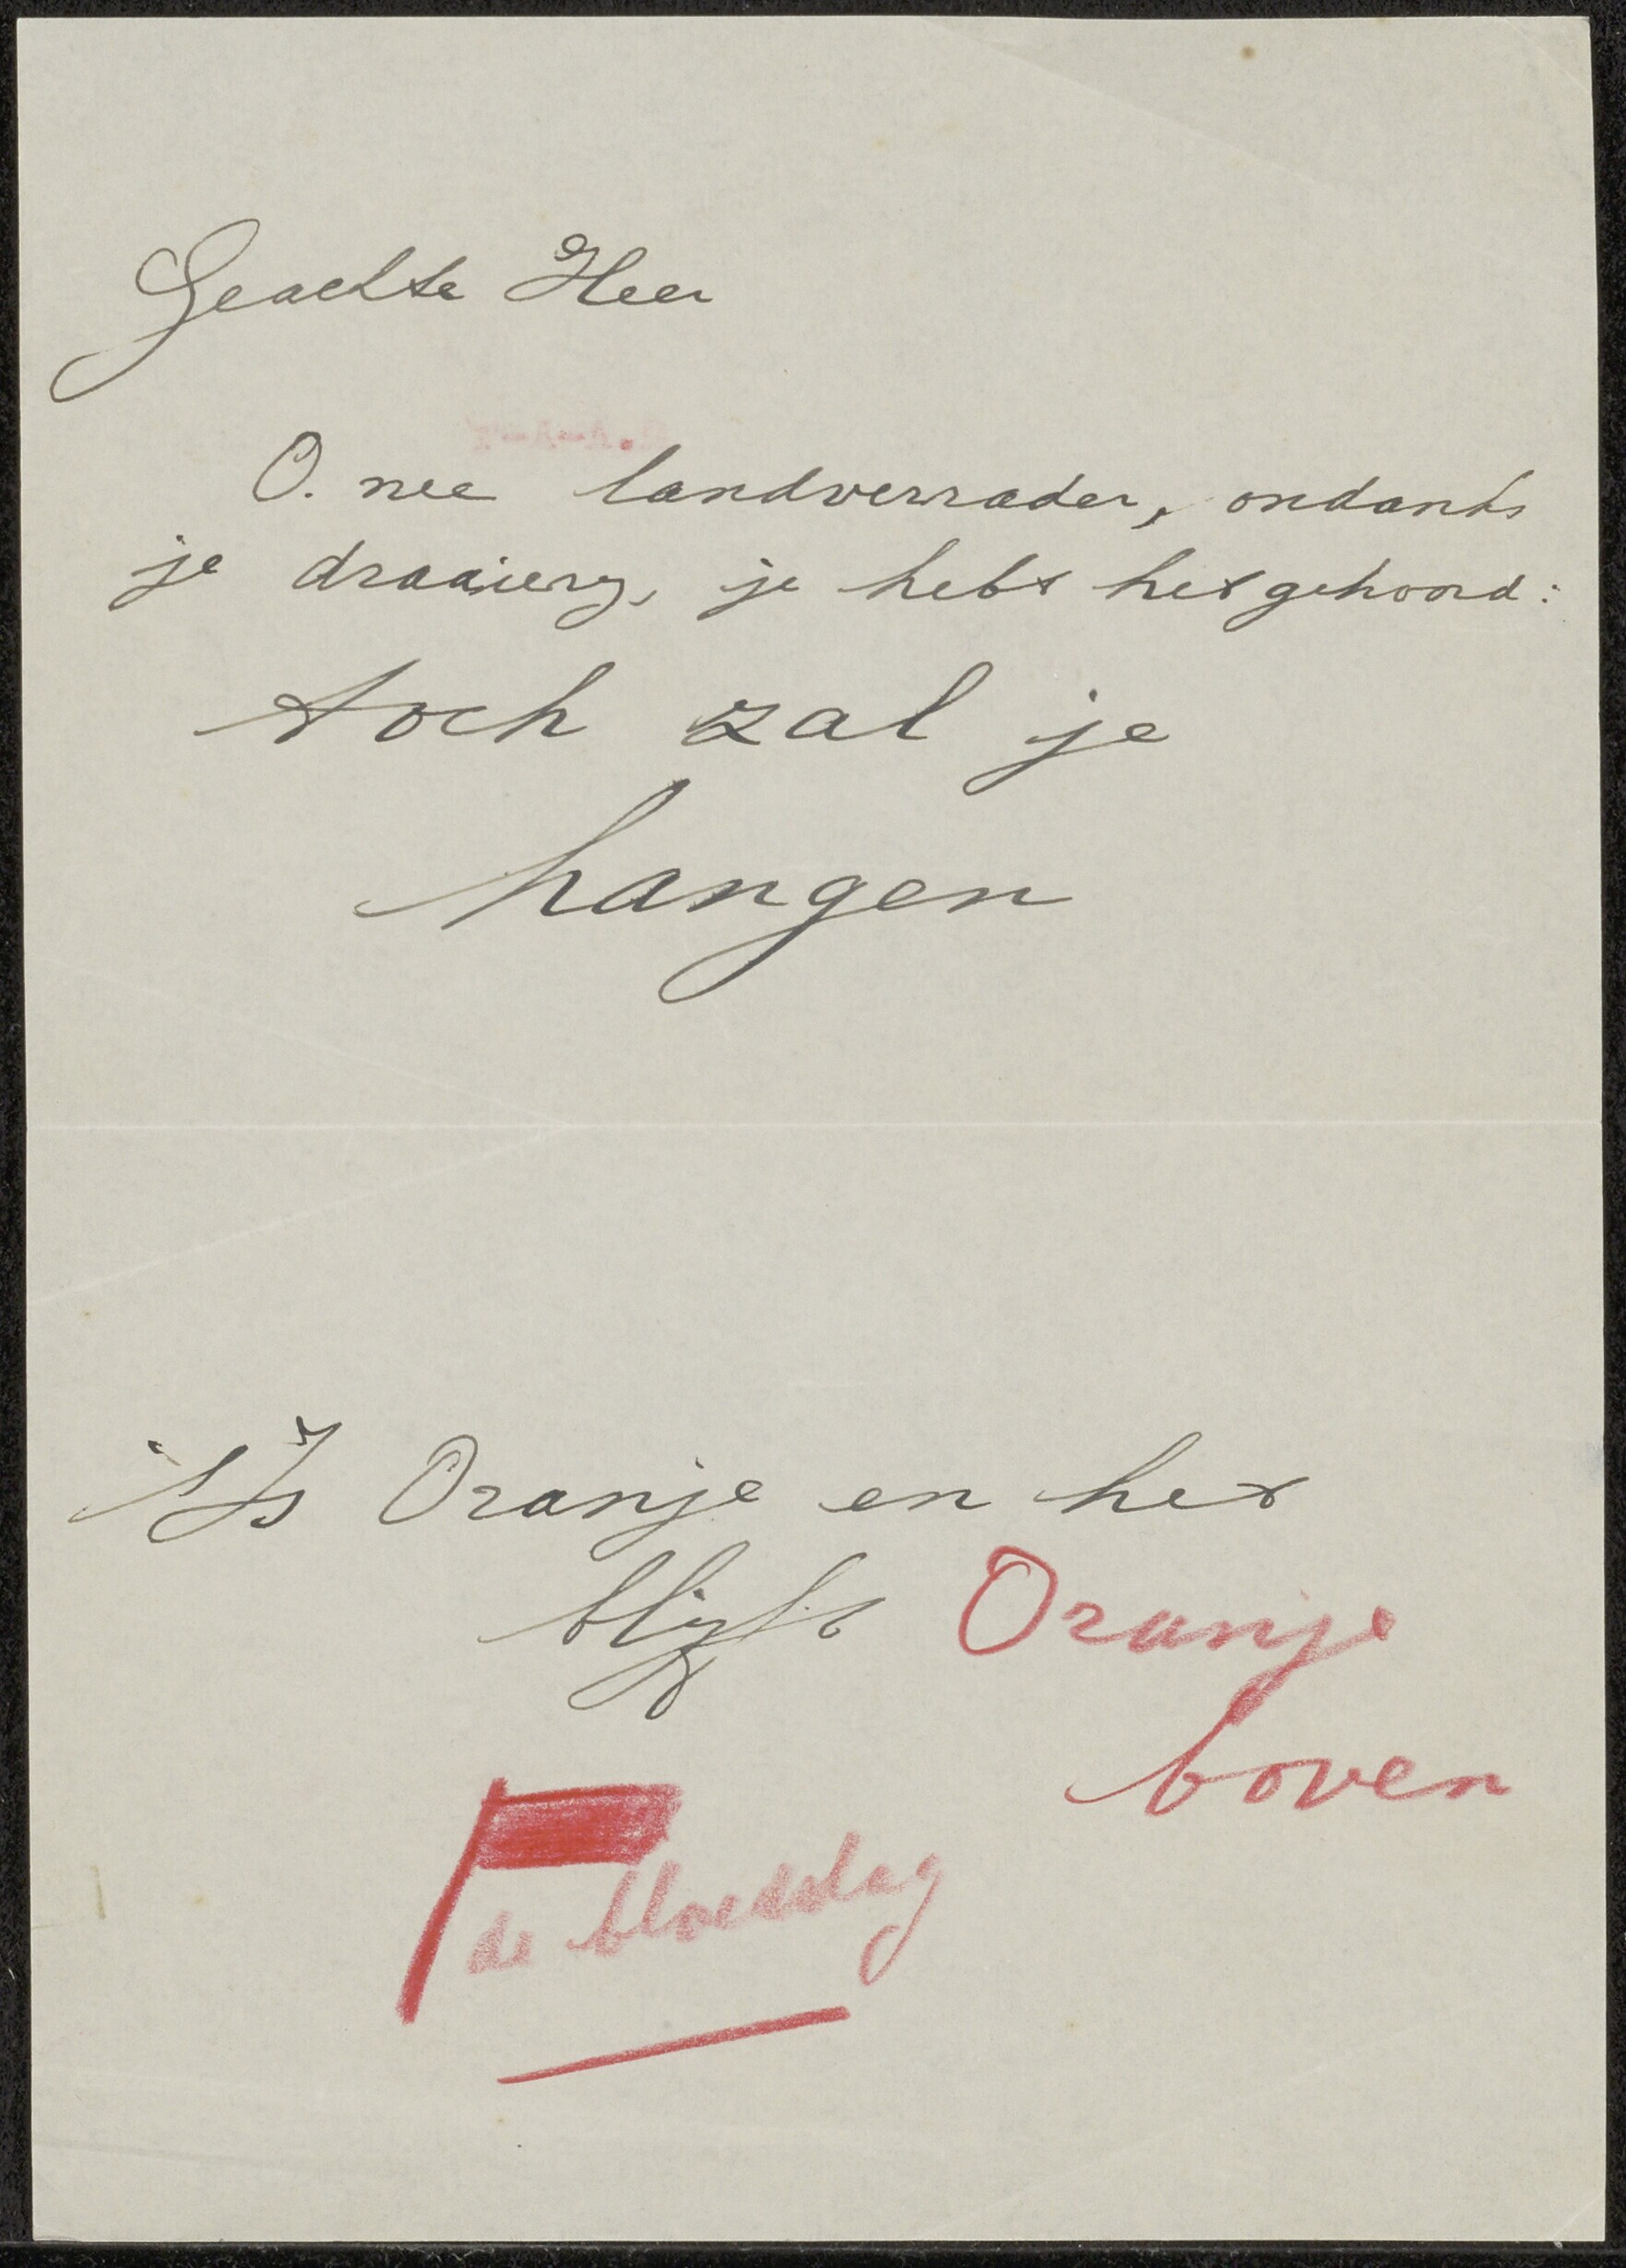 Geachte Heer
O. nee landverrader, ondanks
je draaierij, je hebt het gehoord:
toch zal je
hangen
't Is Oranje en het
blijft Oranje
boven
de bloedvlag